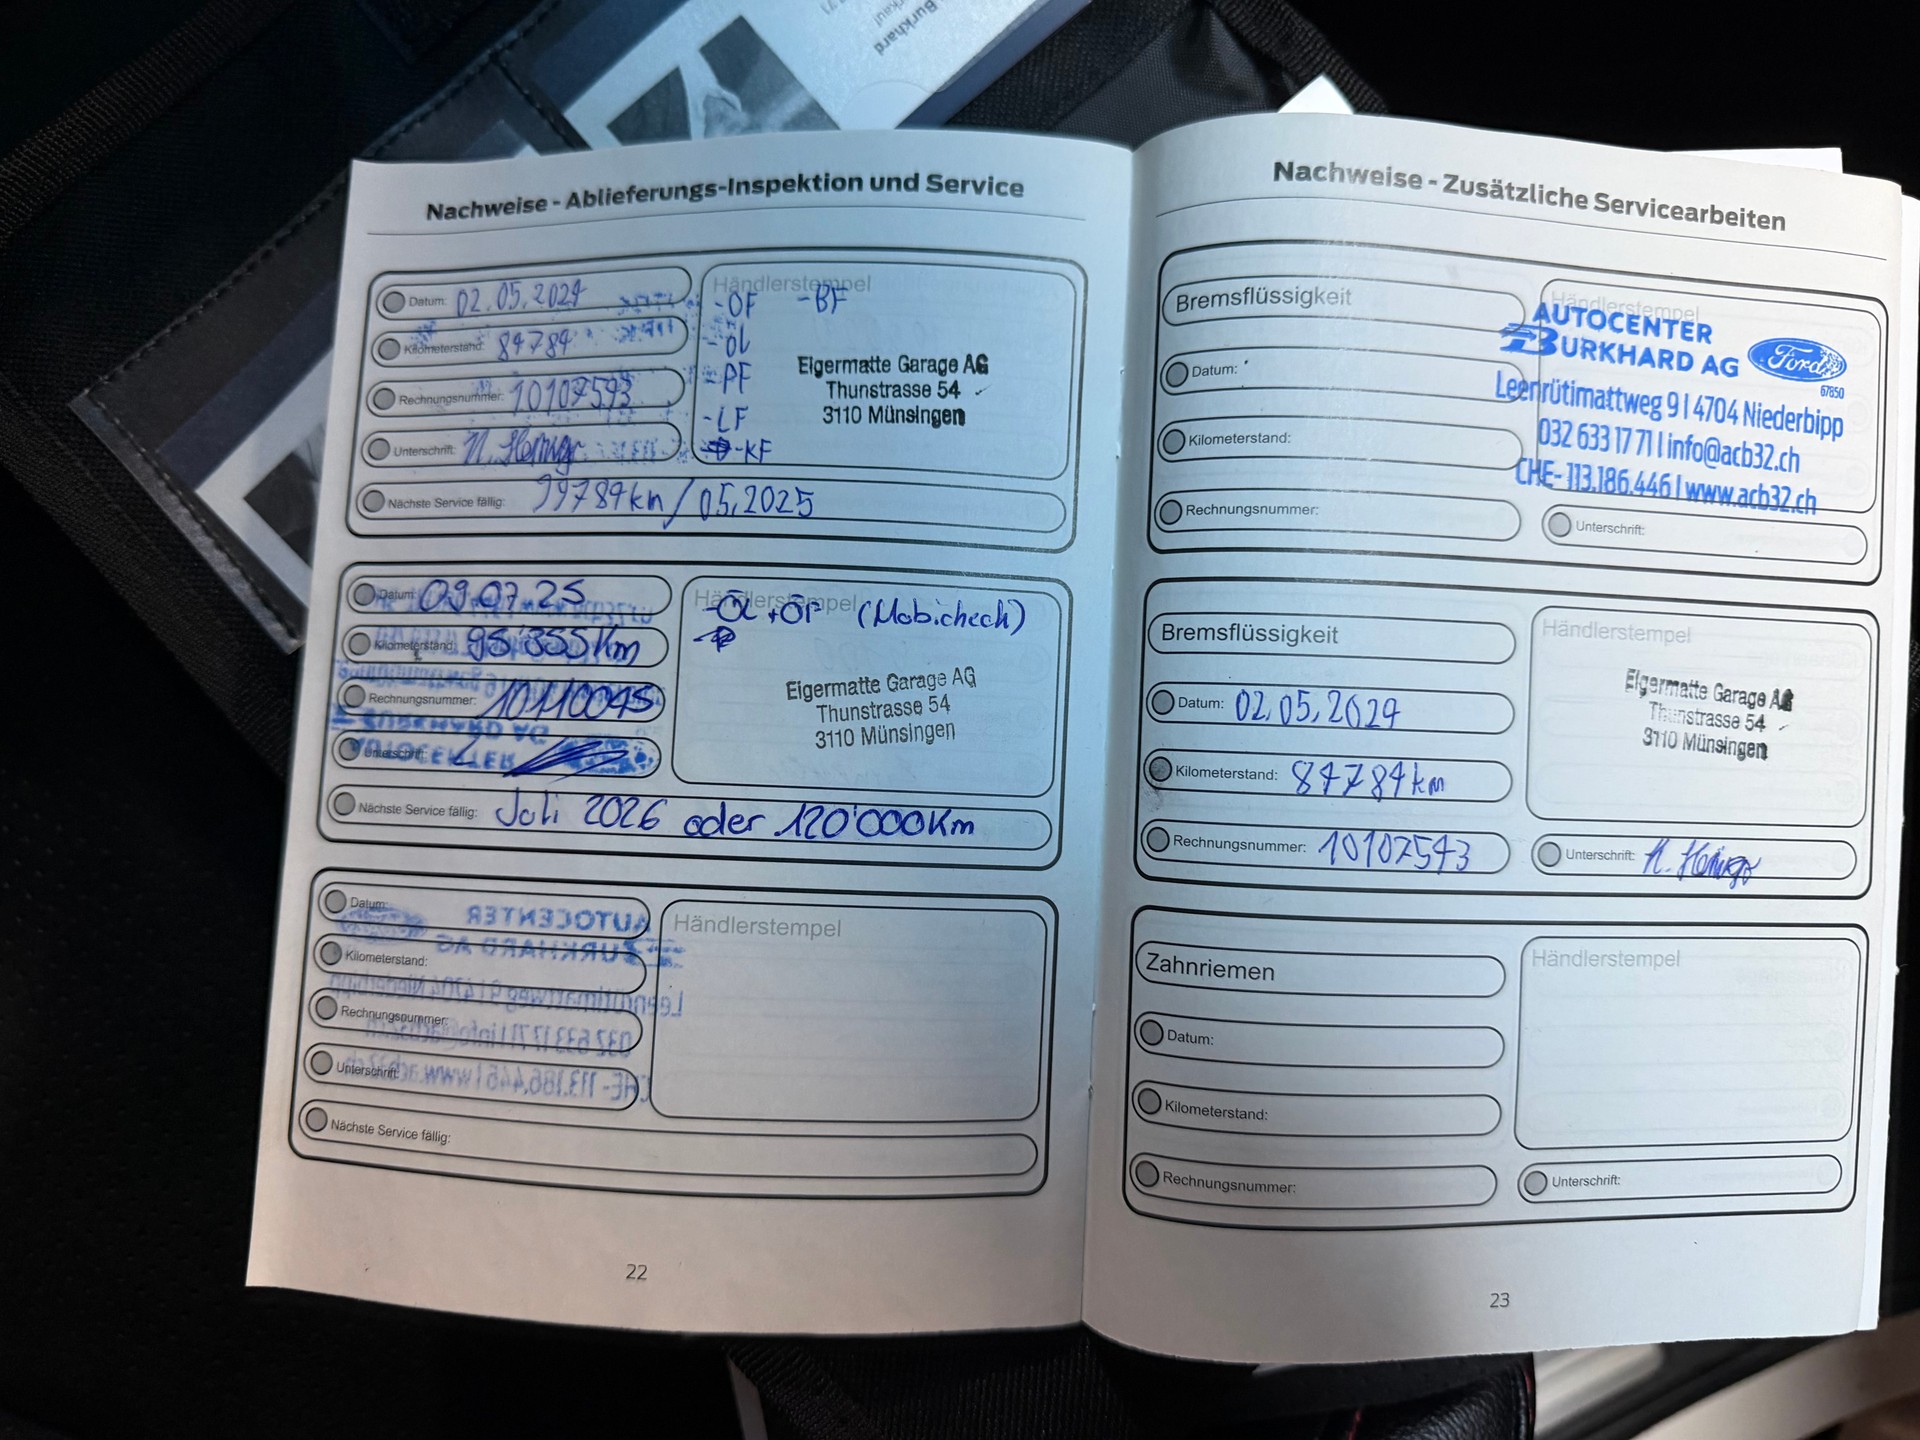 Burkhard
Nachweise - Ablieferungs-Inspektion und Service
Datum: 02.05.2024
Kilometerstand: 84784
Rechnungsnummer: 10107593
Unterschrift:
Nächste Service fällig: 99784km / 05.2025
Händlerstempel
-ÖF -BF
-Öl
-PF
-LF
-KF
Eigermatte Garage AG
Thunstrasse 54
3110 Münsingen
Datum: 09.07.25
Kilometerstand: 95'355km
Rechnungsnummer: 10110045
Unterschrift:
Nächste Service fällig: Juli 2026 oder 120'000Km
Händlerstempel
-ÖL +ÖF (Mobicheck)
Eigermatte Garage AG
Thunstrasse 54
3110 Münsingen
Datum:
Kilometerstand:
Rechnungsnummer:
Unterschrift:
Nächste Service fällig:
Händlerstempel
22
Nachweise - Zusätzliche Servicearbeiten
Bremsflüssigkeit
Datum:
Kilometerstand:
Rechnungsnummer:
Händlerstempel
AUTOCENTER
BURKHARD AG Ford
67850
Leenrütimattweg 9 | 4704 Niederbipp
032 633 17 71 | info@acb32.ch
CHE-113.186.446 | www.acb32.ch
Unterschrift:
Bremsflüssigkeit
Datum: 02.05.2024
Kilometerstand: 84784km
Rechnungsnummer: 10107593
Händlerstempel
Eigermatte Garage AG
Thunstrasse 54
3110 Münsingen
Unterschrift:
Zahnriemen
Datum:
Kilometerstand:
Rechnungsnummer:
Händlerstempel
Unterschrift:
23